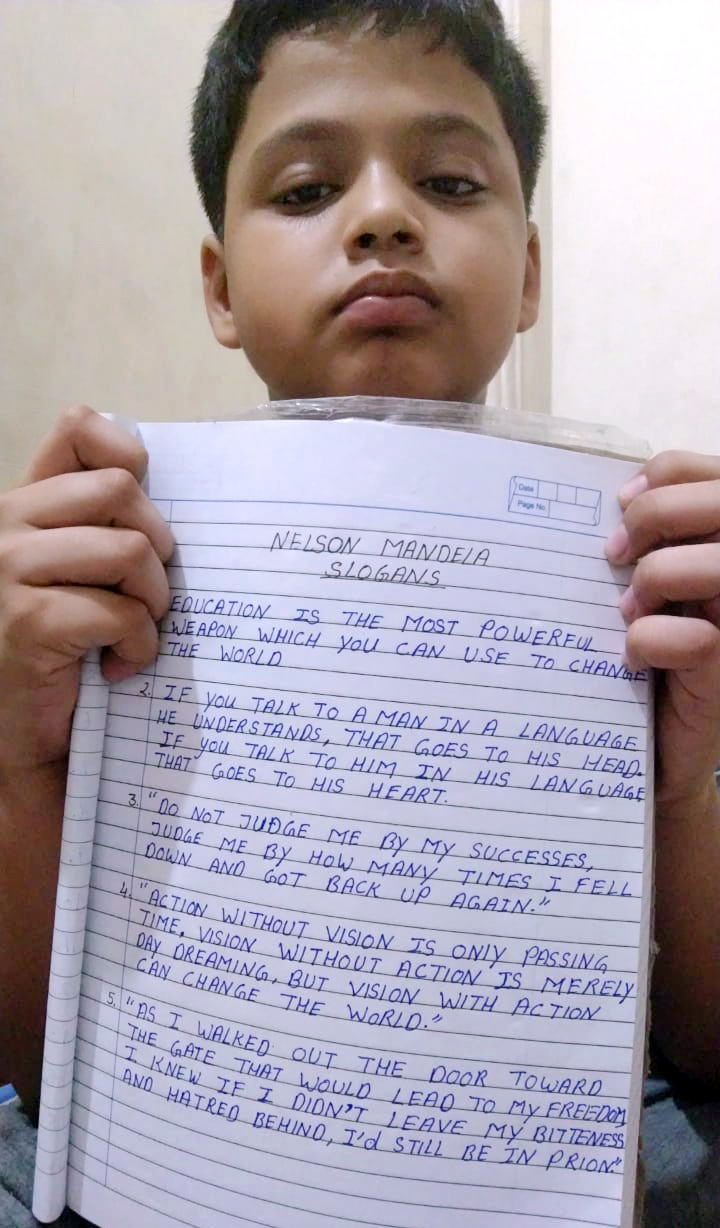 Date
Page No.
NELSON MANDELA
SLOGANS
EDUCATION IS THE MOST POWERFUL
WEAPON WHICH YOU CAN USE TO CHANGE
THE WORLD
2. IF YOU TALK TO A MAN IN A LANGUAGE
HE UNDERSTANDS, THAT GOES TO HIS HEAD.
IF YOU TALK TO HIM IN HIS LANGUAGE
THAT GOES TO HIS HEART.
3. "DO NOT JUDGE ME BY MY SUCCESSES,
JUDGE ME BY HOW MANY TIMES I FELL
DOWN AND GOT BACK UP AGAIN."
4. "ACTION WITHOUT VISION IS ONLY PASSING
TIME, VISION WITHOUT ACTION IS MERELY
DAY DREAMING, BUT VISION WITH ACTION
CAN CHANGE THE WORLD."
5. "AS I WALKED OUT THE DOOR TOWARD
THE GATE THAT WOULD LEAD TO MY FREEDOM
I KNEW IF I DIDN'T LEAVE MY BITTENESS
AND HATRED BEHIND, I'd STILL BE IN PRION"